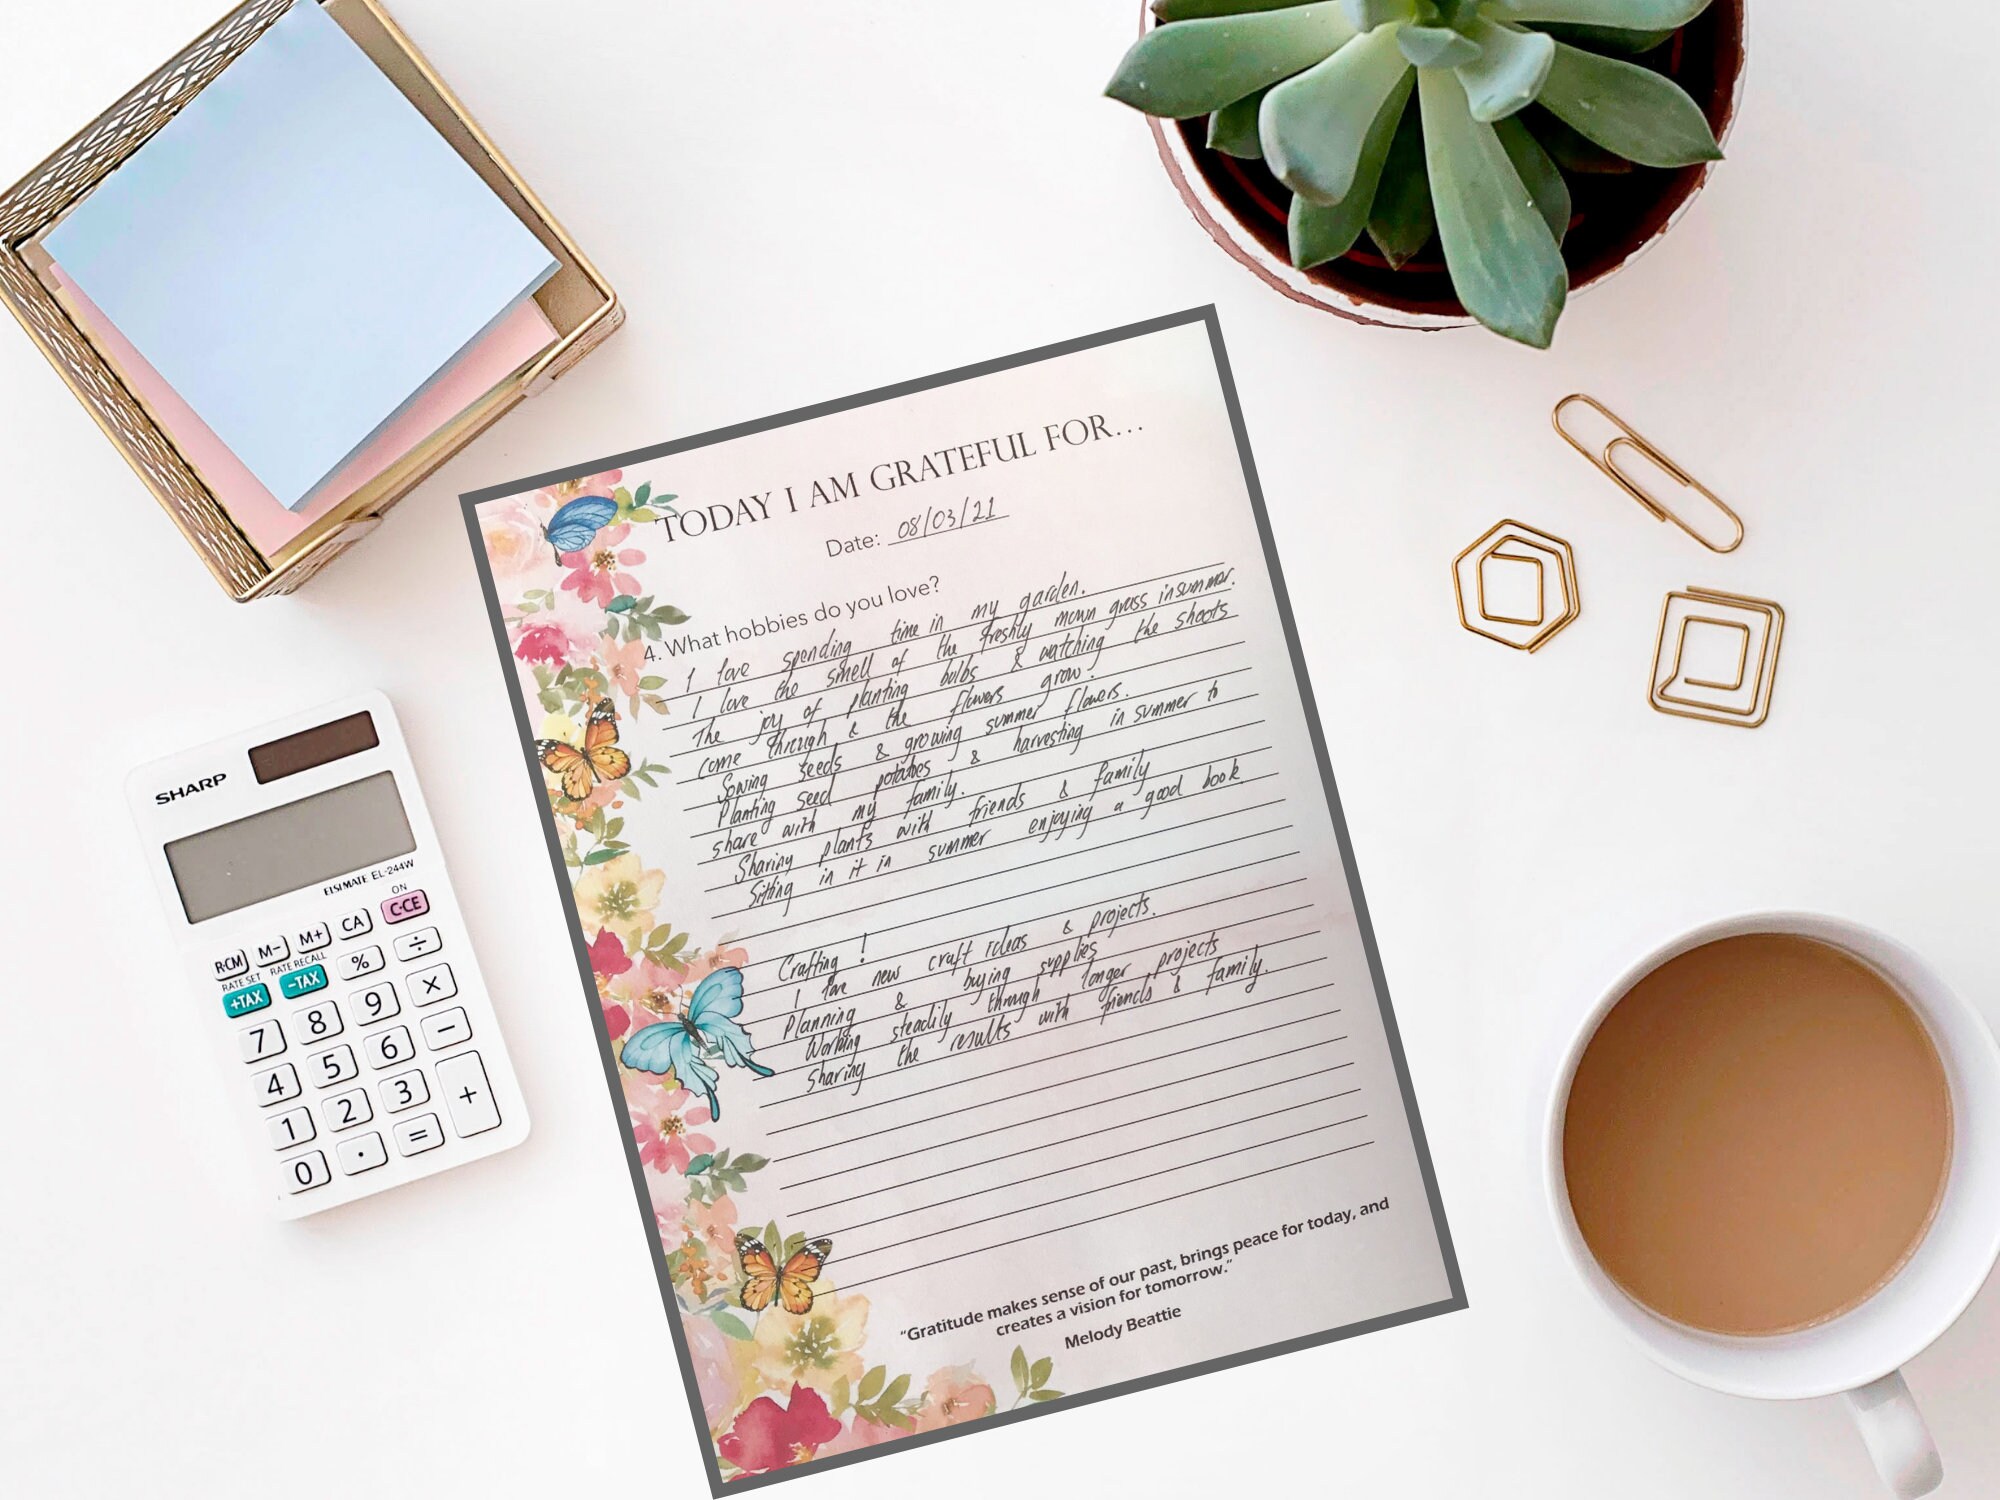 TODAY I AM GRATEFUL FOR...
Date: 08/03/21
4. What hobbies do you love?
I love spending time in my garden.
I love the smell of the freshly mown grass in summer.
The joy of planting bulbs & watching the shoots
come through & the flowers grow.
Sowing seeds & growing summer flowers.
Planting seed potatoes & harvesting in summer to
share with my family.
Sharing plants with friends & family
Sitting in it in summer enjoying a good book
Crafting!
I love new craft ideas & projects.
Planning & buying supplies
Working steadily through longer projects
Sharing the results with friends & family.
"Gratitude makes sense of our past, brings peace for today, and
creates a vision for tomorrow."
Melody Beattie
SHARP
ELSI MATE EL-244W
ON
R·CM M− M+ CA C·CE
RATE SET RATE RECALL
+TAX −TAX % ÷
7 8 9 ×
4 5 6 −
1 2 3 +
0 · =